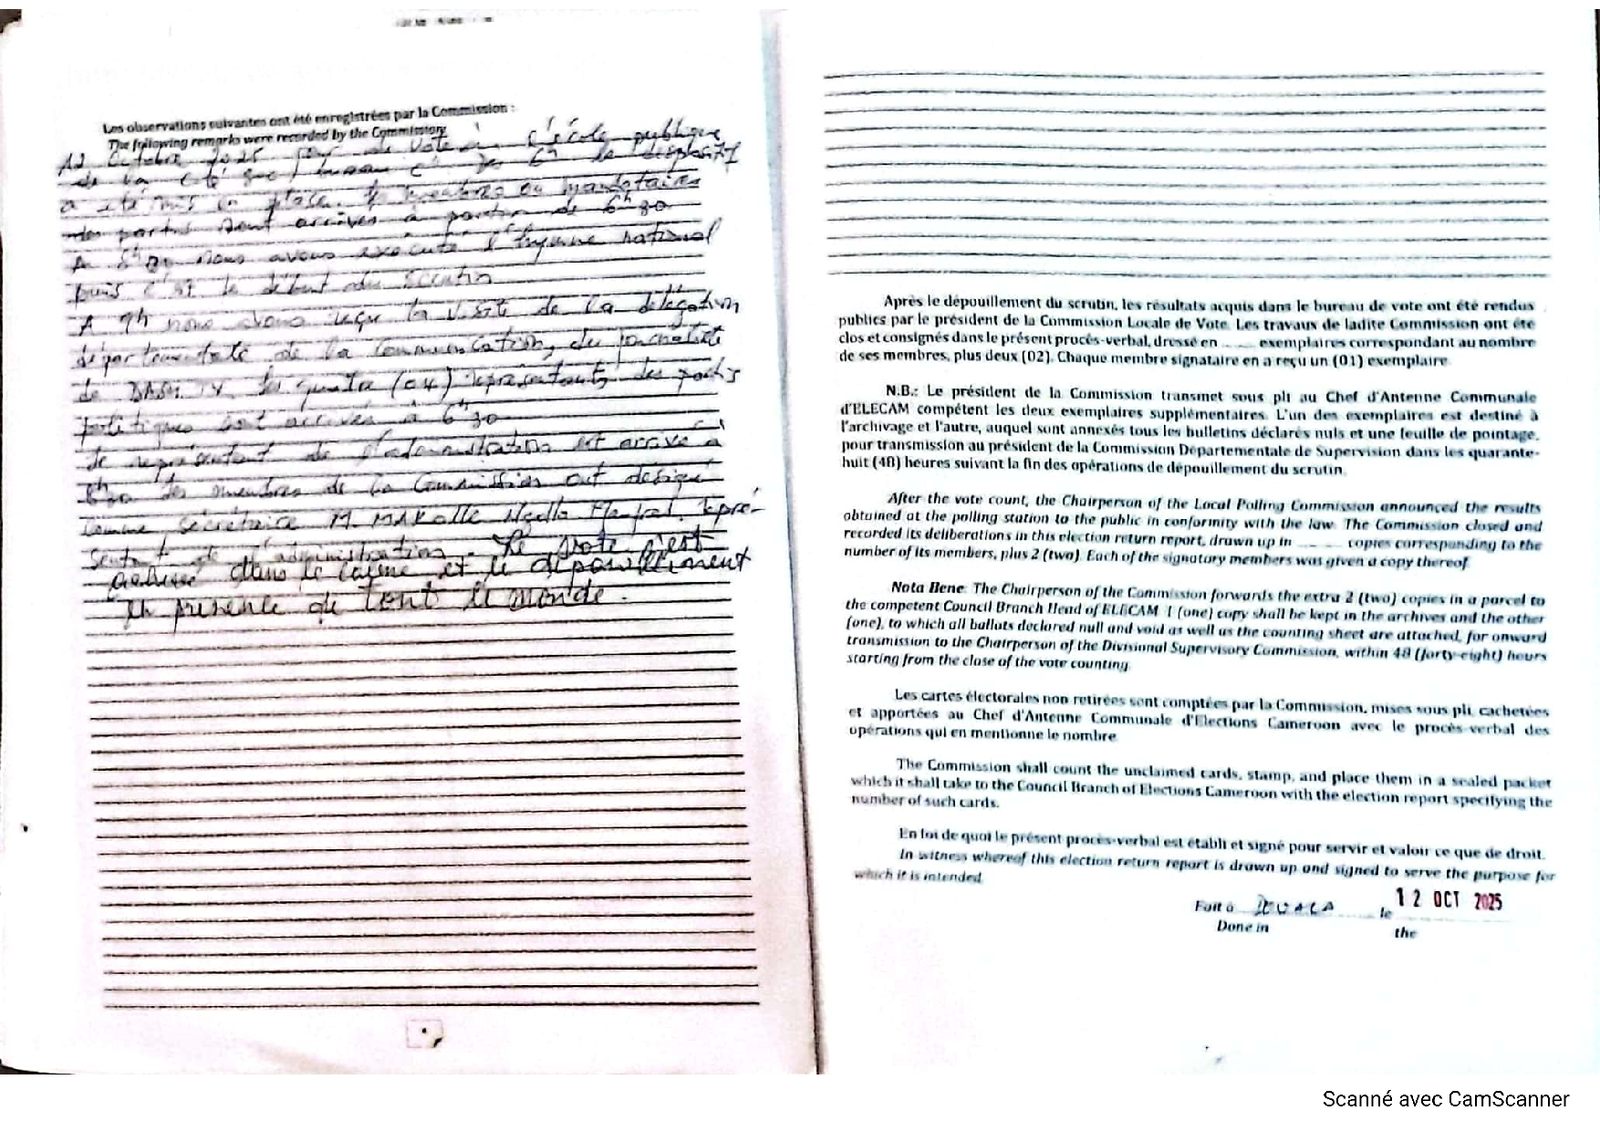 Les observations suivantes ont été enregistrées par la Commission :
The following remarks were recorded by the Commission
12 Octobre 2025 jour de vote à l'école publique
de la cité bureau C 6h le dispositif
a été mis en place. membres ou mandataires
des partis sont arrivés à partir de 6h30
A nous avons exécuté l'hymne national
puis c'est le début du scrutin
A 9h nous avons reçu la visite de la délégation
départementale de la communication, du journaliste
de DASH TV. les quatre (04) représentants des partis
politiques sont arrivés à 6h30
Le représentant de l'administration est arrivé à
Les membres de la Commission ont désigné
comme secrétaire M. MAKOLLE repré-
sentant de l'administration. Le vote s'est
achevé dans le calme et le dépouillement
en présence de tout le monde.
Après le dépouillement du scrutin, les résultats acquis dans le bureau de vote ont été rendus
publics par le président de la Commission Locale de Vote. Les travaux de ladite Commission ont été
clos et consignés dans le présent procès-verbal, dressé en ...... exemplaires correspondant au nombre
de ses membres, plus deux (02). Chaque membre signataire en a reçu un (01) exemplaire.
N.B.: Le président de la Commission transmet sous pli au Chef d'Antenne Communale
d'ELECAM compétent les deux exemplaires supplémentaires. L'un des exemplaires est destiné à
l'archivage et l'autre, auquel sont annexés tous les bulletins déclarés nuls et une feuille de pointage,
pour transmission au président de la Commission Départementale de Supervision dans les quarante-
huit (48) heures suivant la fin des opérations de dépouillement du scrutin.
After the vote count, the Chairperson of the Local Polling Commission announced the results
obtained at the polling station to the public in conformity with the law. The Commission closed and
recorded its deliberations in this election return report, drawn up in ...... copies corresponding to the
number of its members, plus 2 (two). Each of the signatory members was given a copy thereof.
Nota Bene: The Chairperson of the Commission forwards the extra 2 (two) copies in a parcel to
the competent Council Branch Head of ELECAM. 1 (one) copy shall be kept in the archives and the other
(one), to which all ballots declared null and void as well as the counting sheet are attached, for onward
transmission to the Chairperson of the Divisional Supervisory Commission, within 48 (forty-eight) hours
starting from the close of the vote counting.
Les cartes électorales non retirées sont comptées par la Commission, mises sous pli, cachetées
et apportées au Chef d'Antenne Communale d'Elections Cameroon avec le procès-verbal des
opérations qui en mentionne le nombre.
The Commission shall count the unclaimed cards, stamp, and place them in a sealed packet
which it shall take to the Council Branch of Elections Cameroon with the election report specifying the
number of such cards.
En foi de quoi le présent procès-verbal est établi et signé pour servir et valoir ce que de droit.
In witness whereof this election return report is drawn up and signed to serve the purpose for
which it is intended.
Fait à DOUALA le 12 OCT 2025
Done in the
Scanné avec CamScanner